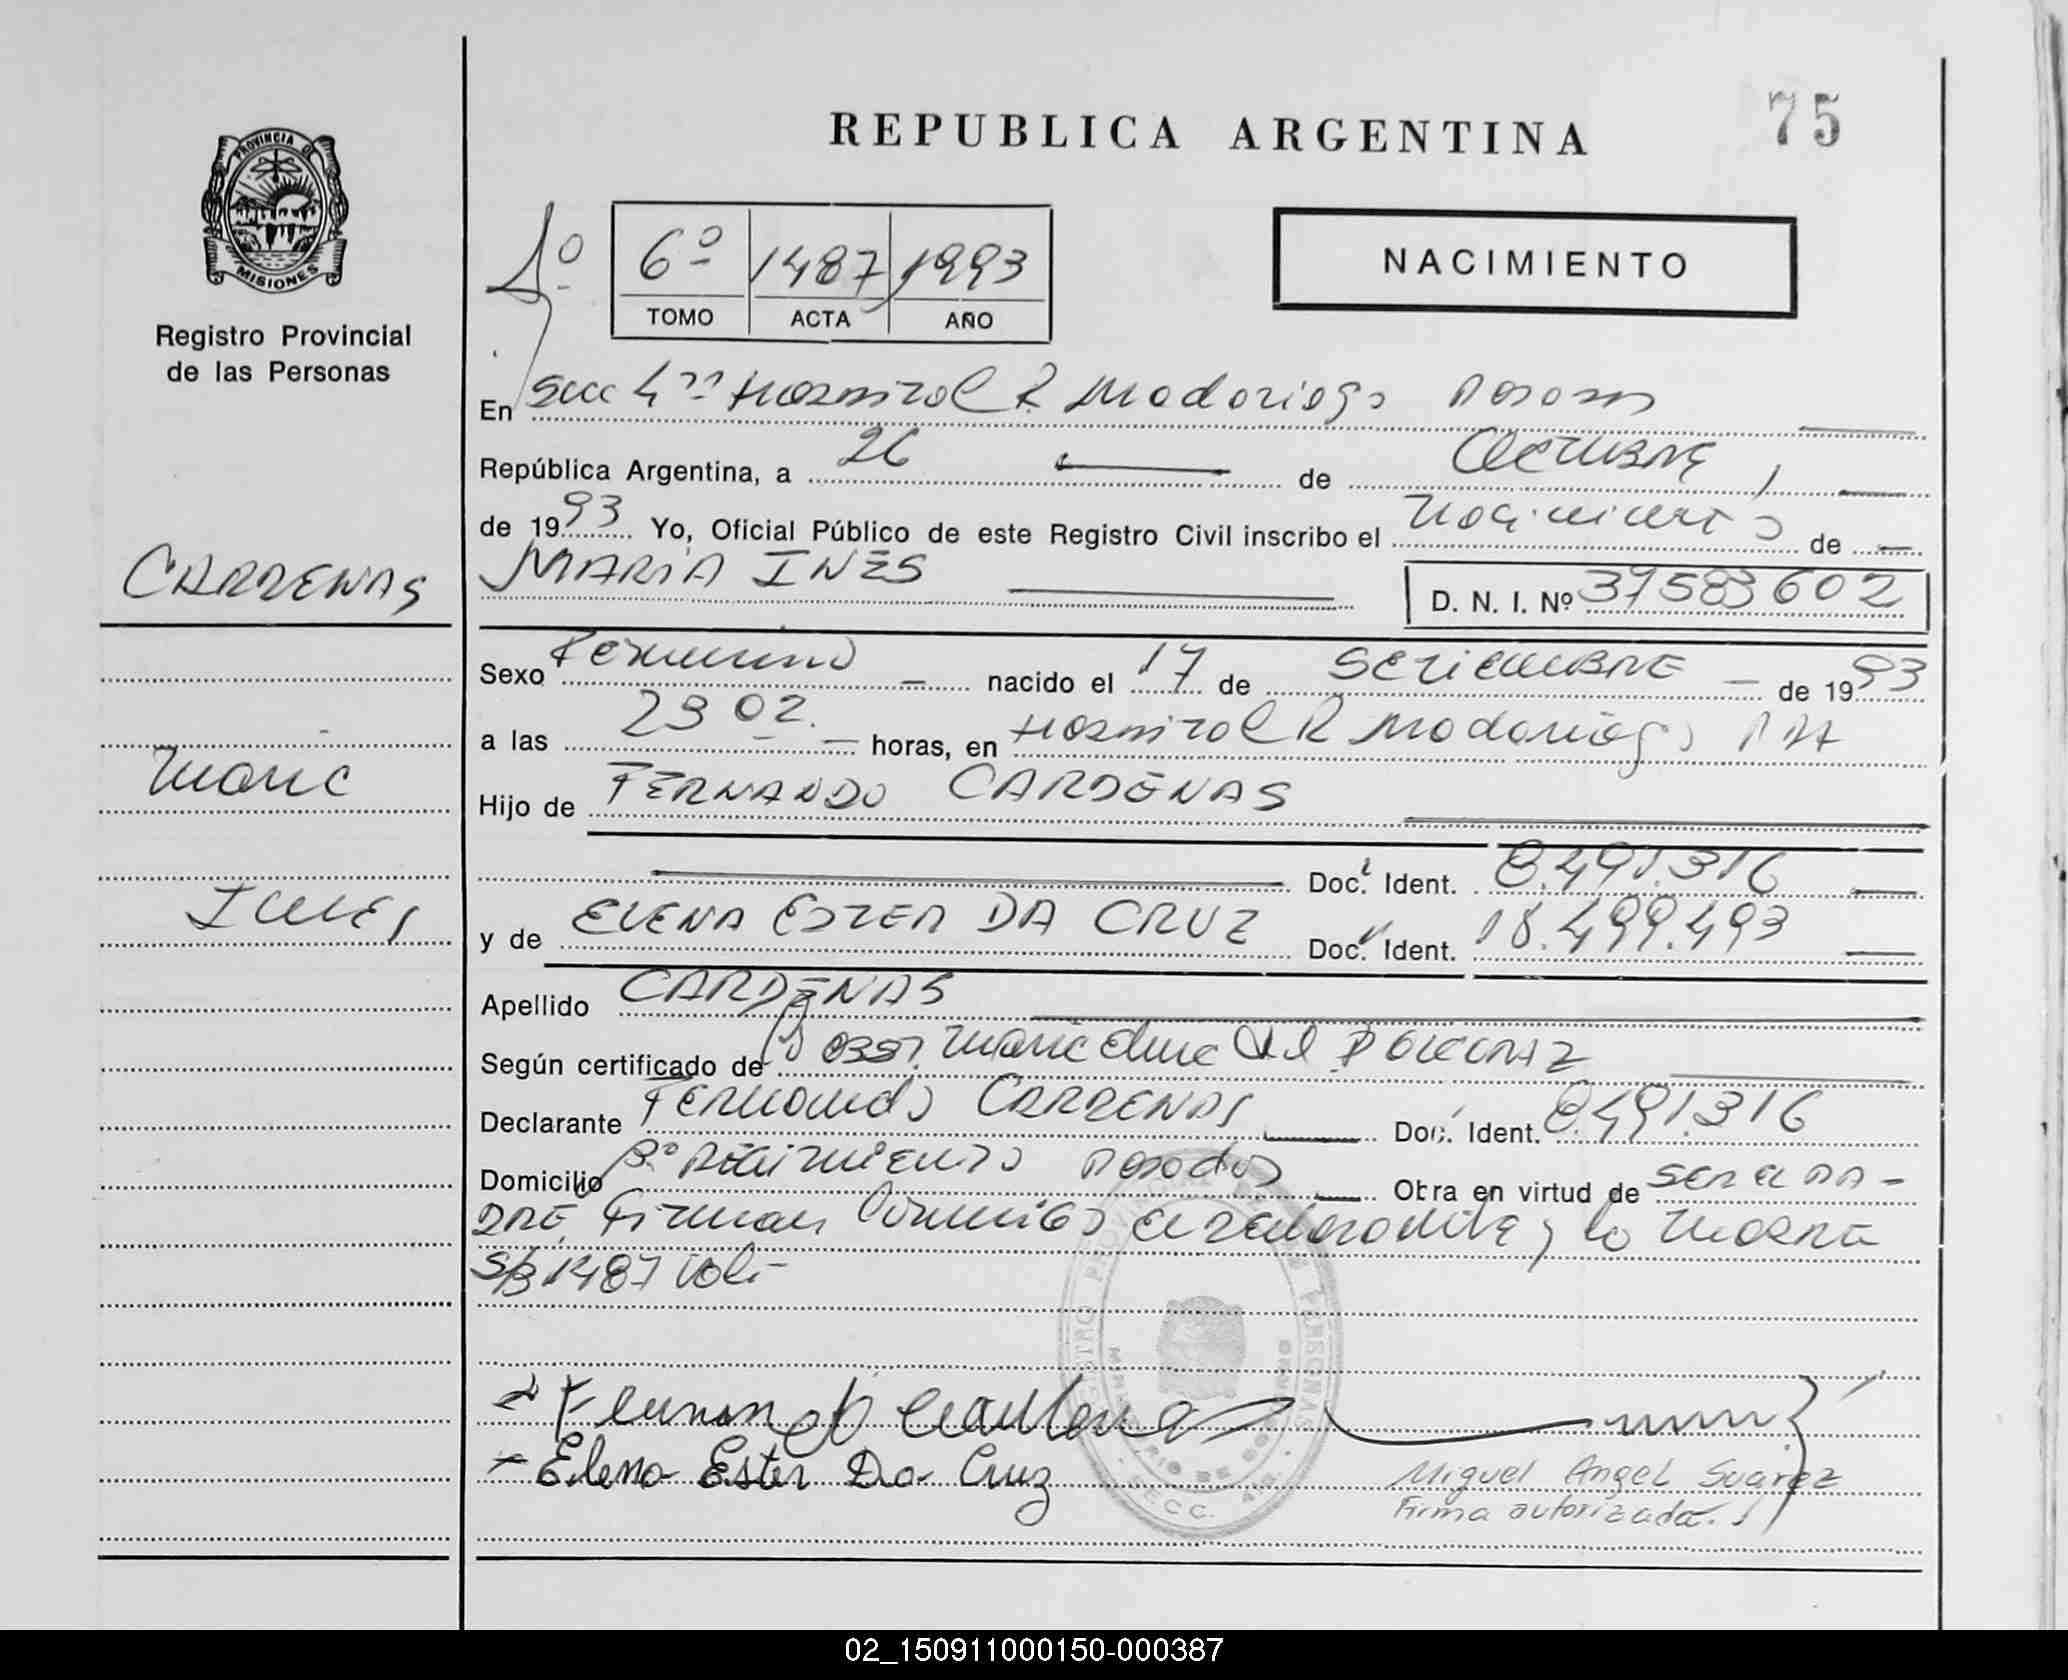 75
REPUBLICA ARGENTINA
PROVINCIA DE
MISIONES
Registro Provincial
de las Personas
6º 1487 1993
TOMO ACTA AÑO
NACIMIENTO
En Secc 4ta Hospital R Madariaga Posadas
República Argentina, a 26 de Octubre
de 1993 Yo, Oficial Público de este Registro Civil inscribo el Nacimiento de
CARDENAS
MARIA INES
D. N. I. Nº 37583602
Sexo Femenino nacido el 17 de SETIEMBRE de 1993
a las 23 02. horas, en Hospital R Madariaga
Maria
Hijo de FERNANDO CARDENAS
Doc. Ident. 8.491.316
Ines
y de ELENA ESTER DA CRUZ Doc. Ident. 18.499.493
Apellido CARDENAS
Según certificado de Maria
Declarante Fernando CARDENAS Doc. Ident. 8.491.316
Domicilio Posadas Otra en virtud de SER el PA-
DRE, Firman Conmigo el declarante y la MADRE
1487
Fernando Cardenas
Elena Ester Da Cruz
Miguel Angel Suarez
Firma autorizada.
REGISTRO PROVINCIAL DE LAS PERSONAS
SECC. 4ta.
02_150911000150-000387